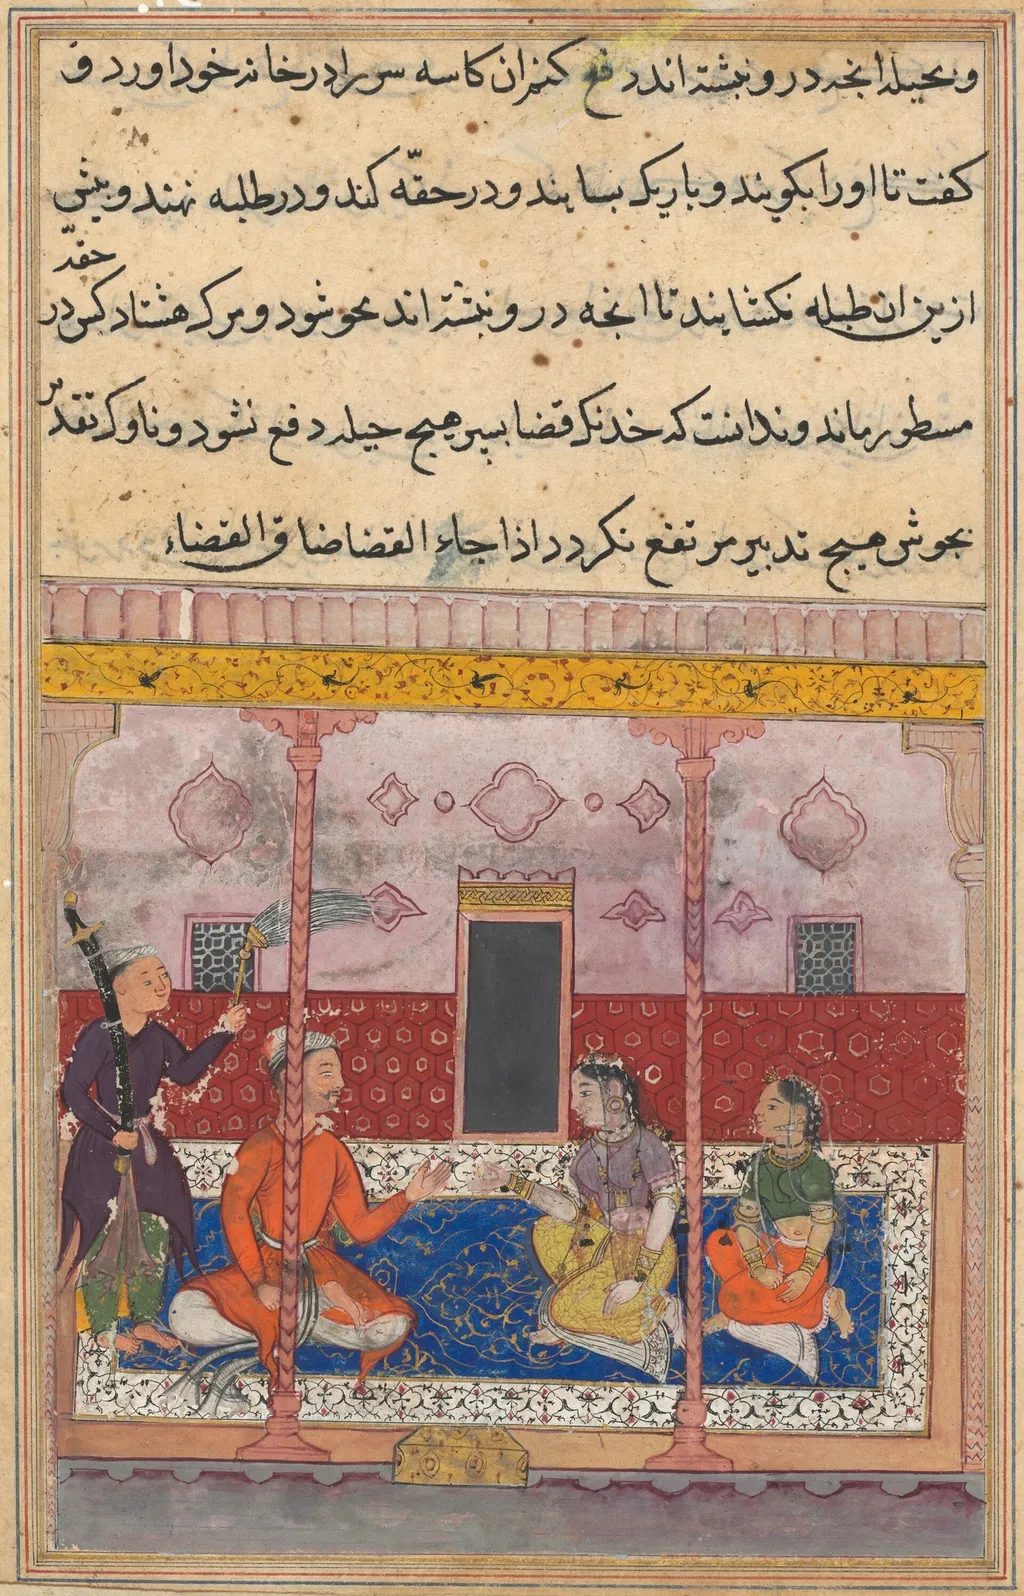 و بحیله انجه درو نبشته اند دفع کنم ان کاسه سر را در خانه خود اورد و
کفت تا اورا بکویند و باریک بسایند و در حقّه کنند و در طبله نهند و بیش
حقّه
ازین ان طبله نکشایند تا انجه درو نبشته اند محو شود و مرک هشتاد کس در
مسطور ماند و ندانست که خدنک قضا بسپر هیج حیله دفع نشود و ناوک تقدیر
بجوش هیج تدبیر مرتفع نکردد اذا جاء القضا ضاق القضاء